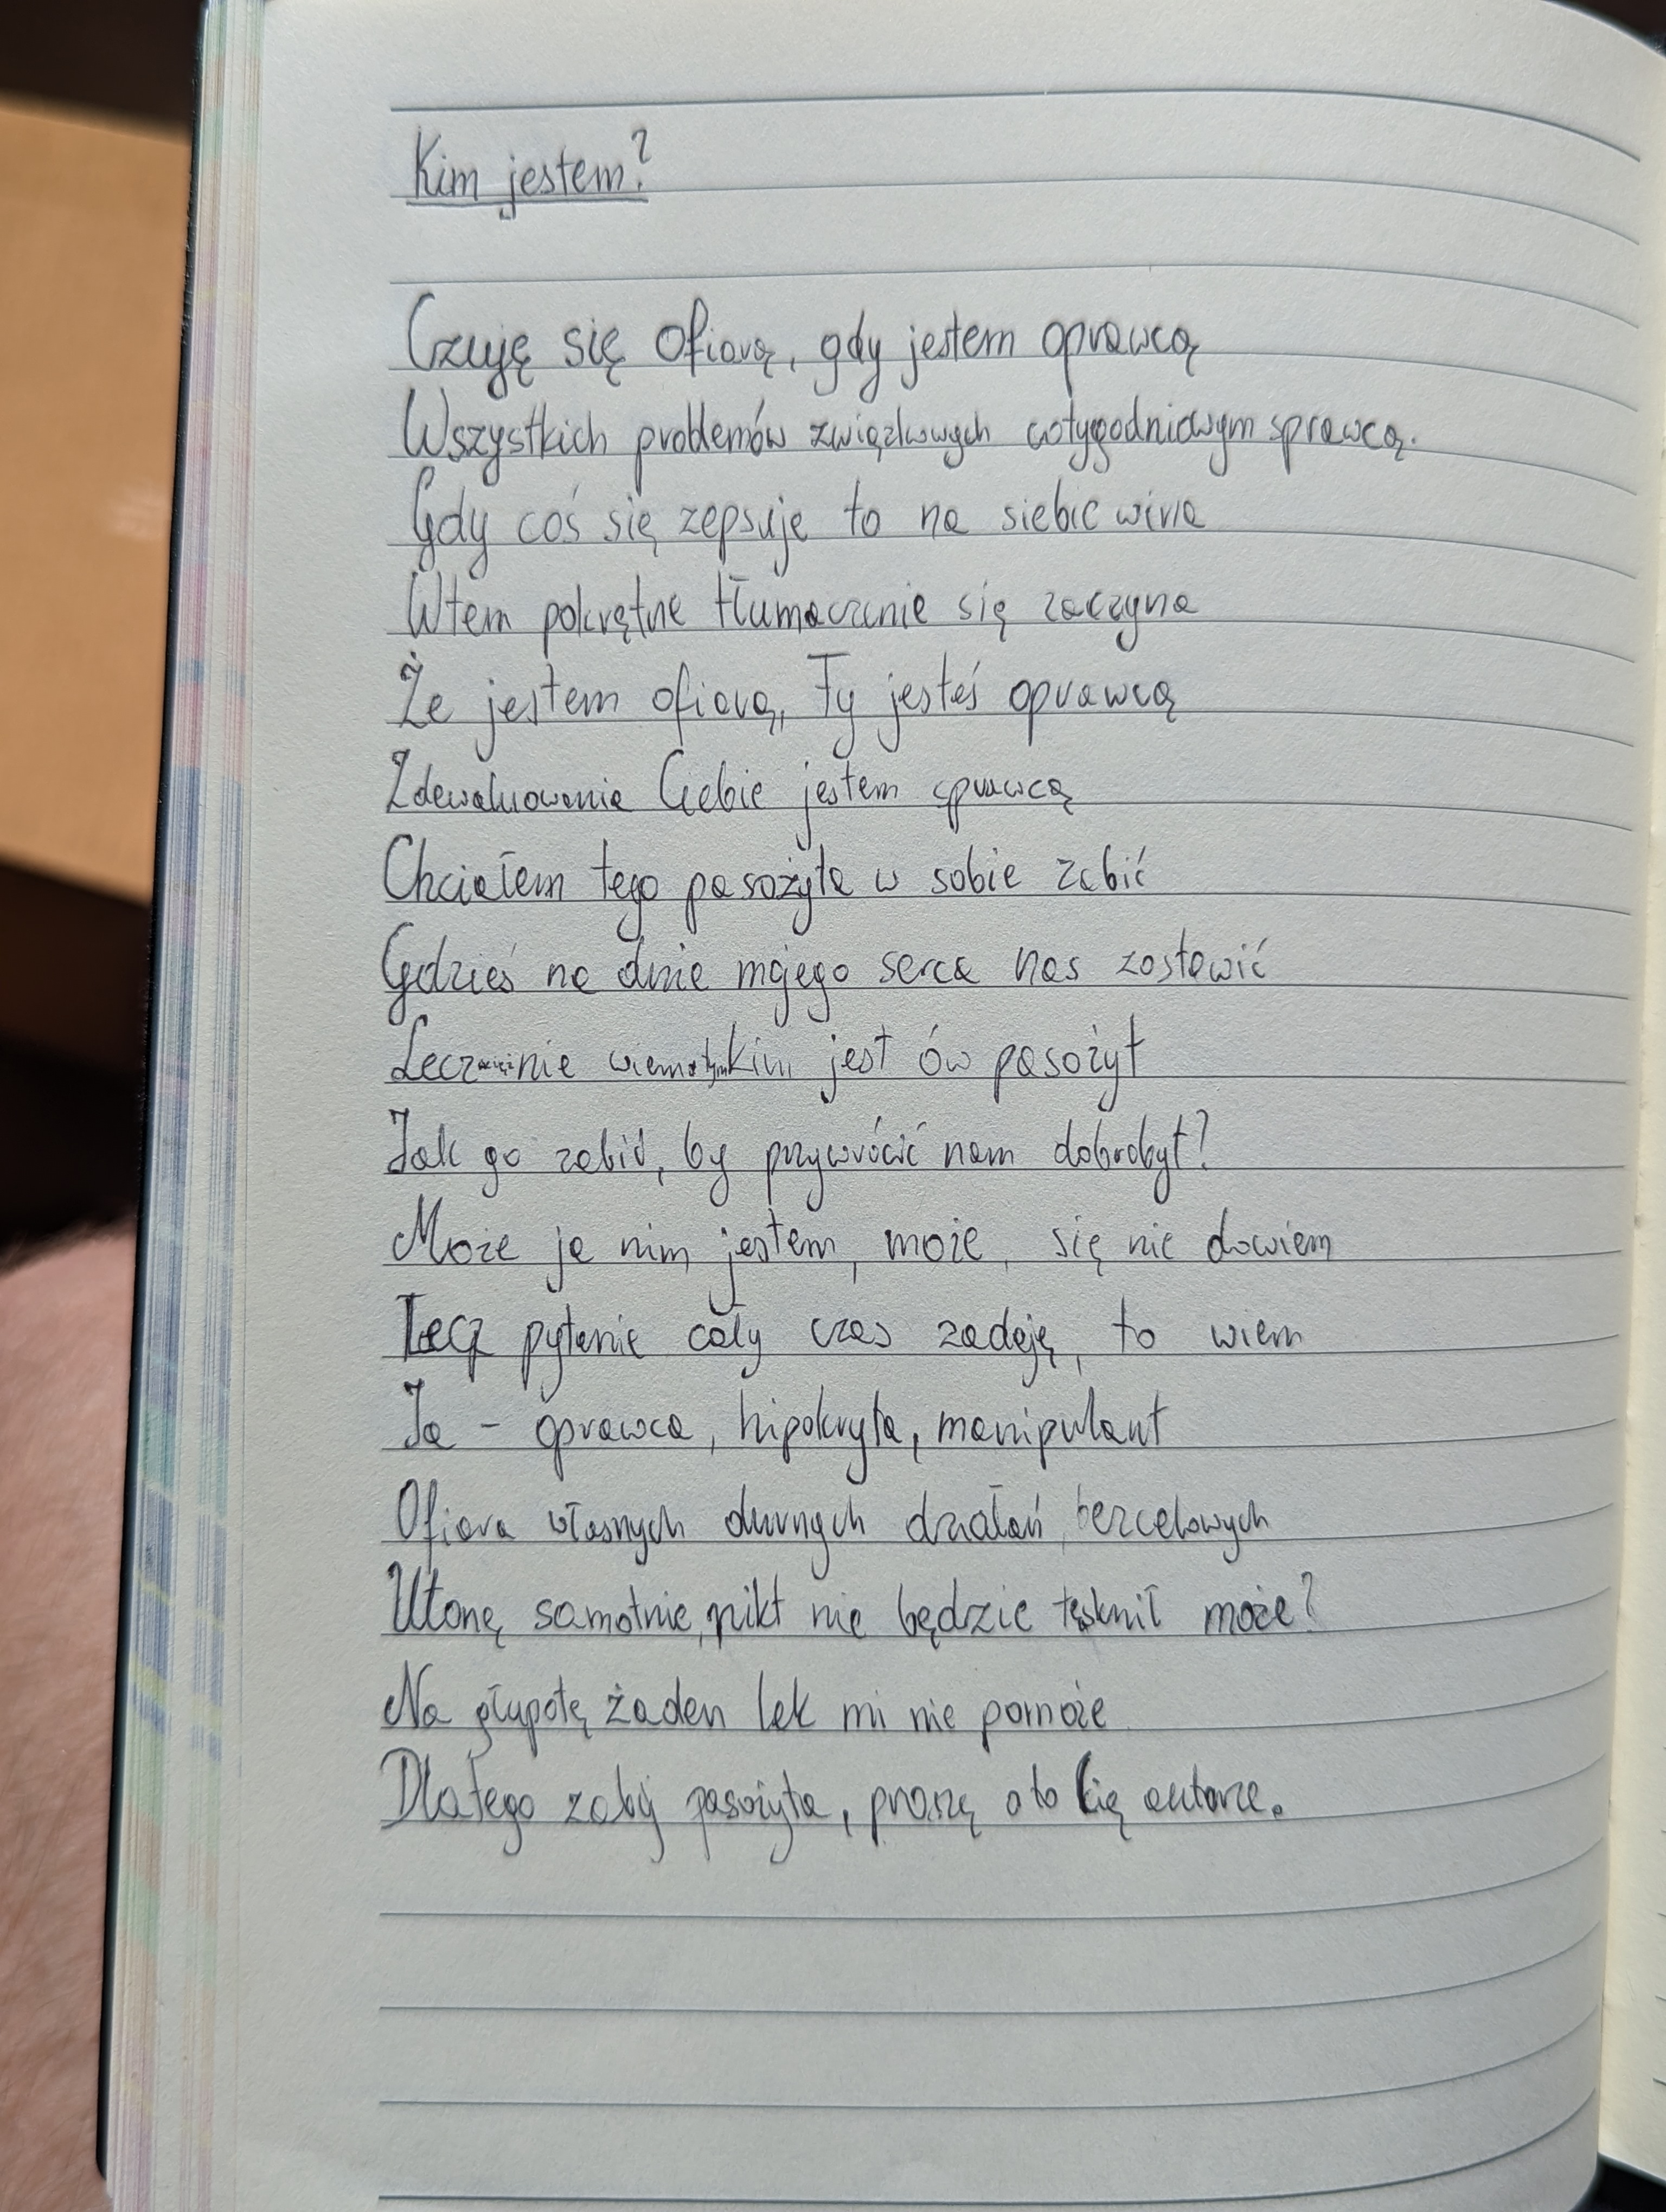 Kim jestem?
Czuję się ofiarą, gdy jestem oprawcą
Wszystkich problemów związkowych cotygodniowym sprawcą.
Gdy coś się zepsuje to na siebie wina
Wtem pokrętne tłumaczenie się zaczyna
Że jestem ofiarą, Ty jesteś oprawcą
Zdewaluowania Ciebie jestem sprawcą
Chciałem tego pasożyta w sobie zabić
Gdzieś na dnie mojego serca nas zostawić
Lecz wciąż nie wiem kim jest ów pasożyt
Jak go zabić, by przywrócić nam dobrobyt?
Może ja nim jestem, może, się nie dowiem
Lecz pytanie cały czas zadaję, to wiem
Ja - oprawca, hipokryta, manipulant
Ofiara własnych durnych działań bezcelowych
Utonę samotnie, nikt nie będzie tęsknił może?
Na głupotę żaden lek mi nie pomoże
Dlatego zabij pasożyta, proszę o to Cię autorze.